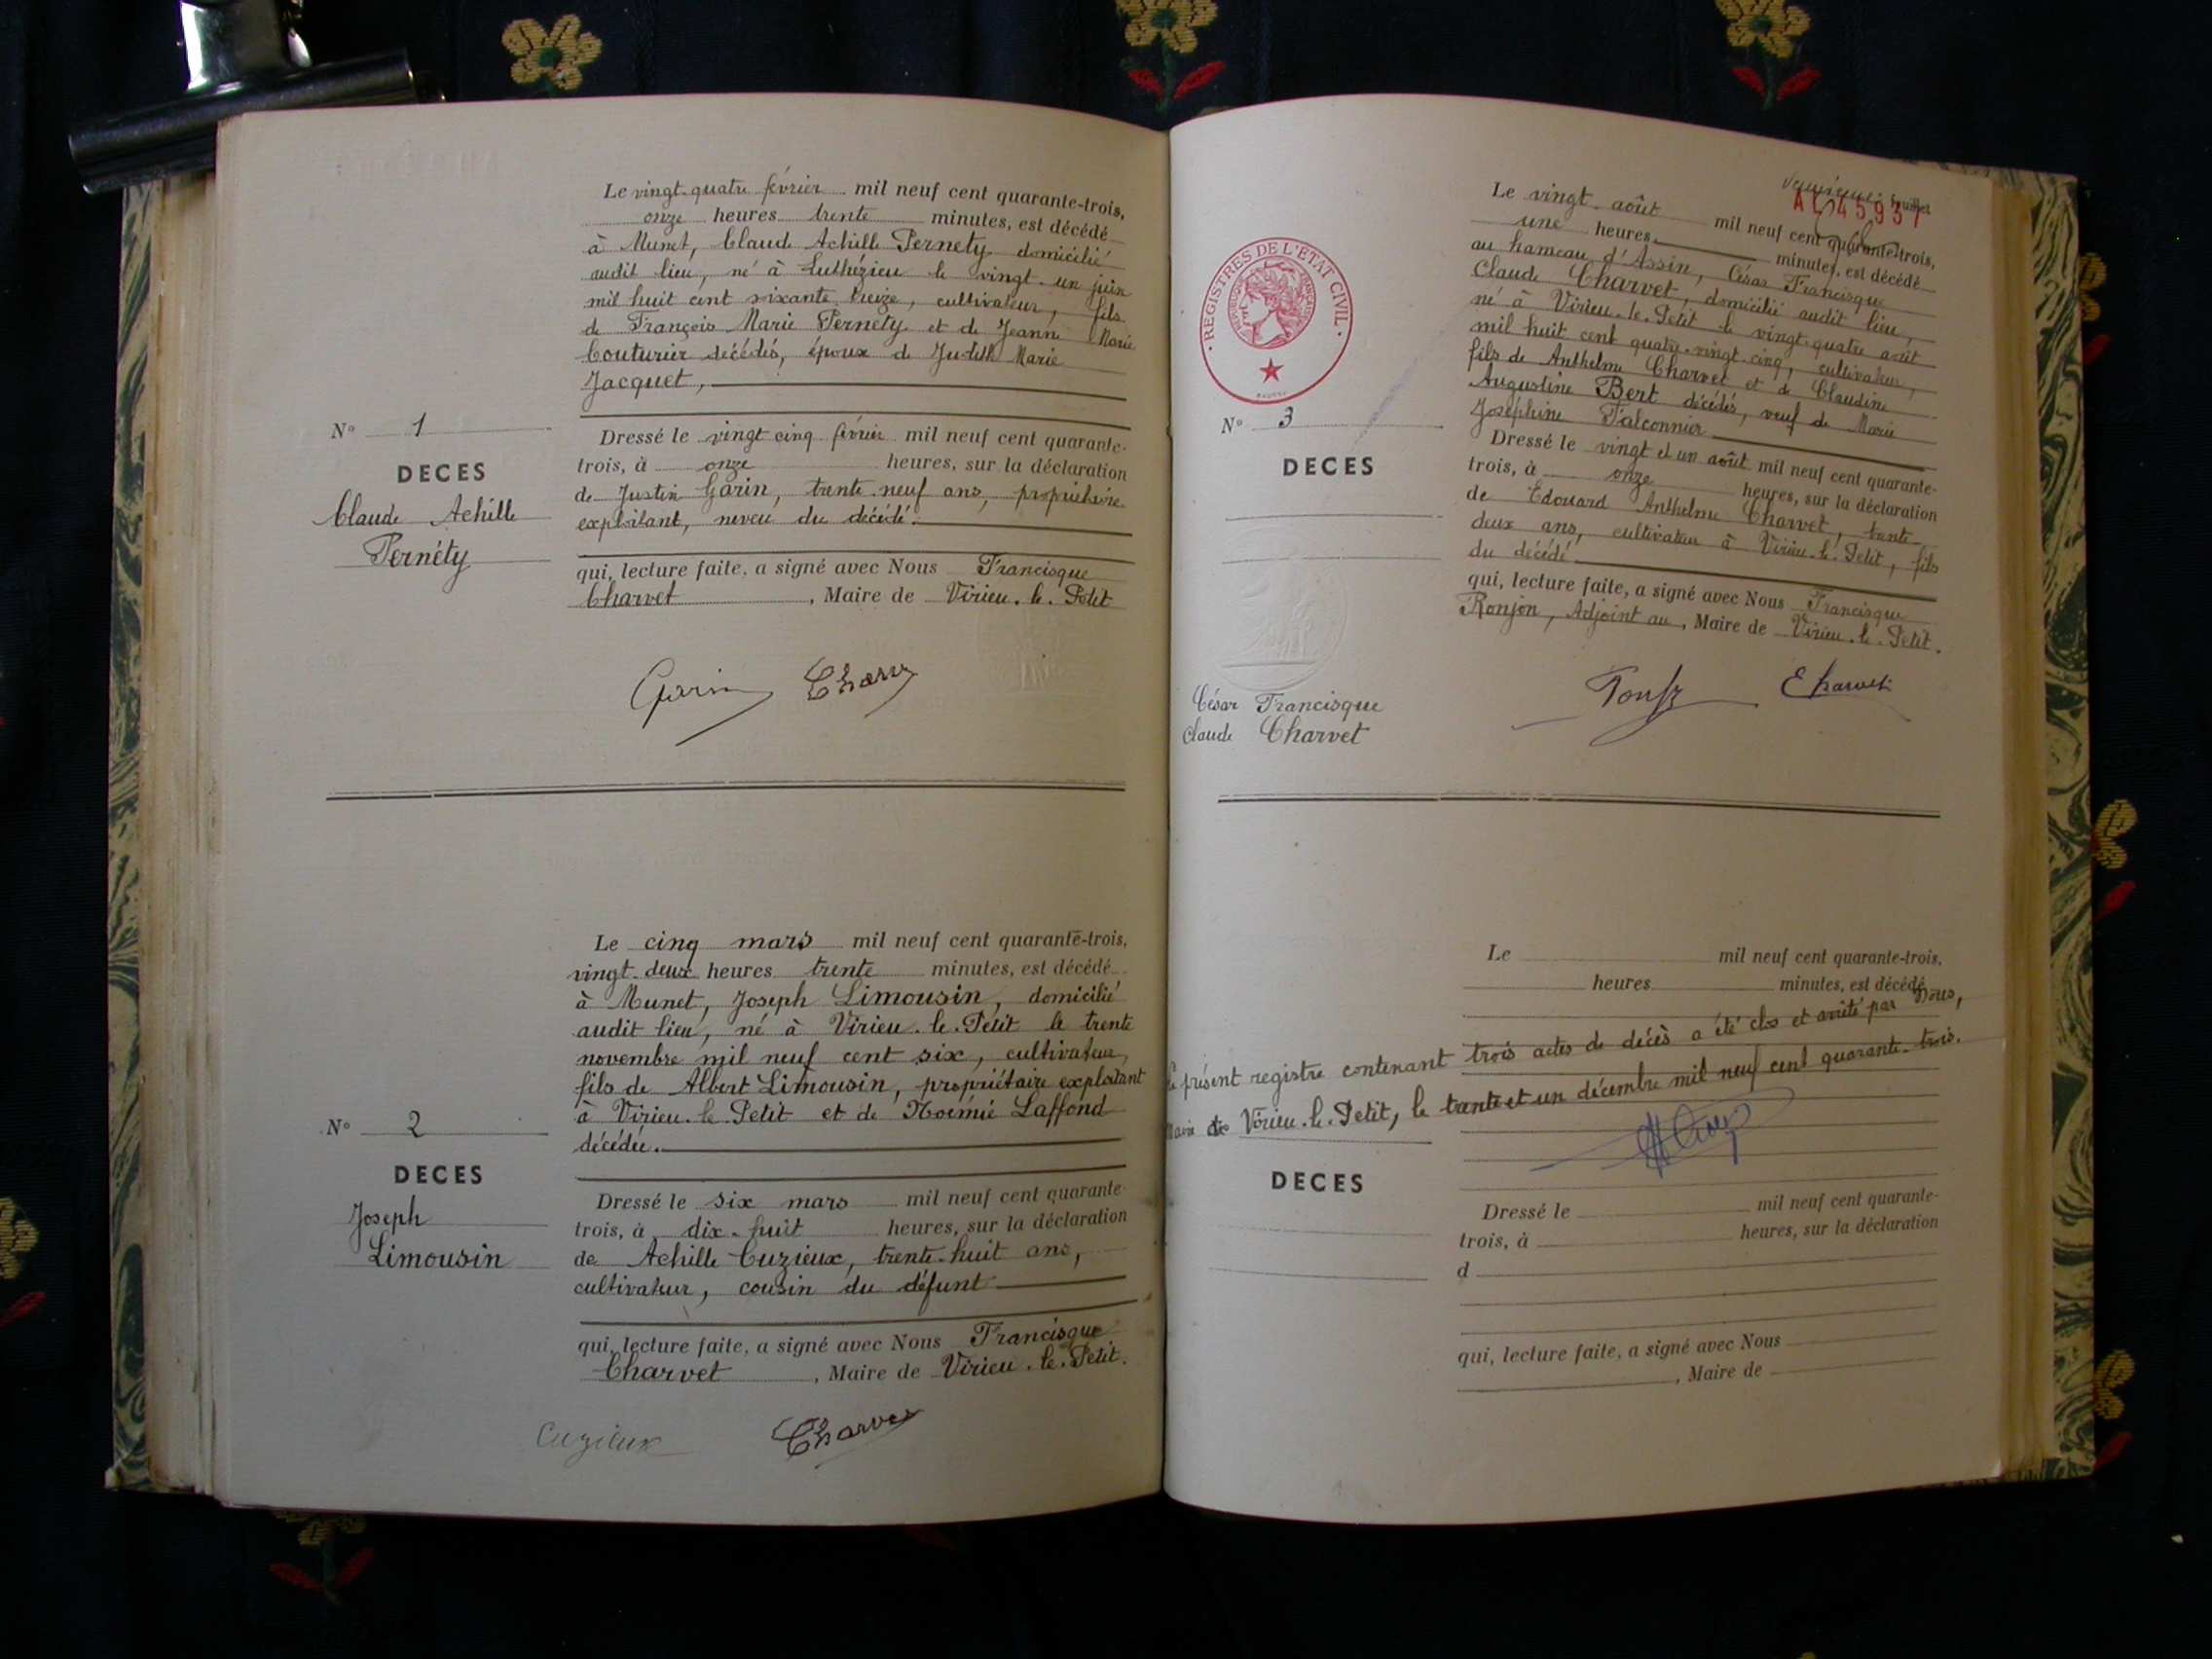 Le vingt-quatre février mil neuf cent quarante-trois,
onze heures trente minutes, est décédé
à Munet, Claude Achille Pernéty domicilié
audit lieu, né à Luthézieu le vingt-un juin
mil huit cent soixante treize, cultivateur, fils
de François Marie Pernéty et de Jeanne Marie
Couturier décédés, époux de Judith Marie
Jacquet,
N° 1
DECES
Claude Achille
Pernéty
Dressé le vingt cinq février mil neuf cent quarante-
trois, à onze heures, sur la déclaration
de Justin Garin, trente-neuf ans, propriétaire
exploitant, neveu du décédé.
qui, lecture faite, a signé avec Nous Francisque
Charvet, Maire de Virieu-le-Petit
Garin Charvet
Le cinq mars mil neuf cent quarante-trois,
vingt-deux heures trente minutes, est décédé
à Munet, Joseph Limousin, domicilié
audit lieu, né à Virieu-le-Petit le trente
novembre mil neuf cent six, cultivateur,
fils de Albert Limousin, propriétaire exploitant
à Virieu-le-Petit et de Noémie Laffond
décédée.
N° 2
DECES
Joseph
Limousin
Dressé le six mars mil neuf cent quarante
trois, à dix-huit heures, sur la déclaration
de Achille Cuzieux, trente-huit ans,
cultivateur, cousin du défunt
qui, lecture faite, a signé avec Nous Francisque
Charvet, Maire de Virieu-le-Petit.
Cuzieux Charvet
feuillet
REGISTRES DE L'ÉTAT CIVIL
Le vingt août mil neuf cent quarante-trois,
une heures minutes, est décédé
au hameau d'Assin, César Francisque
Claude Charvet, domicilié audit lieu,
né à Virieu-le-Petit le vingt-quatre août
mil huit cent quatre-vingt-cinq, cultivateur,
fils de Anthelme Charvet et de Claudine
Augustine Bert décédés, veuf de Marie
Joséphine Falconnier
N° 3
DECES
César Francisque
Claude Charvet
Dressé le vingt et un août mil neuf cent quarante-
trois, à onze heures, sur la déclaration
de Edouard Anthelme Charvet, trente-
deux ans, cultivateur à Virieu-le-Petit, fils
du décédé
qui, lecture faite, a signé avec Nous Francisque
Ronjon, Adjoint au, Maire de Virieu-le-Petit.
E Charvet
Le mil neuf cent quarante-trois,
heures minutes, est décédé
Le présent registre contenant trois actes de décès a été clos et arrêté par Nous,
Maire de Virieu-le-Petit, le trente et un décembre mil neuf cent quarante-trois.
DECES
Dressé le mil neuf cent quarante-
trois, à heures, sur la déclaration
d
qui, lecture faite, a signé avec Nous
, Maire de